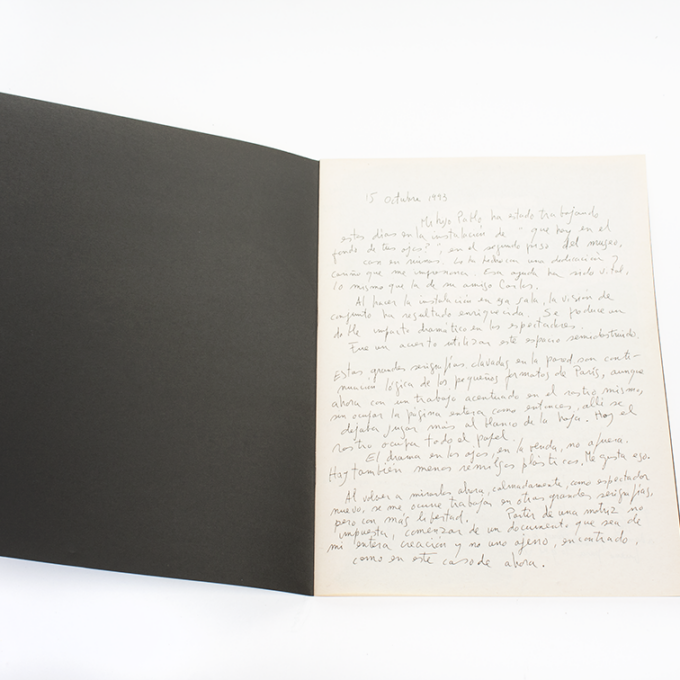 15 Octubre 1993
Mi hijo Pablo ha estado trabajando
estos días en la instalación de "que hay en el
fondo de tus ojos?", en el segundo piso del museo,
casi en ruinas. Lo ha hecho con una dedicación y
cariño que me impresiona. Esa ayuda ha sido vital,
lo mismo que la de mi amigo Carlos.
Al hacer la instalación en esa sala, la visión de
conjunto ha resultado enriquecida. Se produce un
doble impacto dramático en los espectadores.
Fue un acierto utilizar este espacio semidestruido.
Estas grandes serigrafías clavadas en la pared son conti-
nuación lógica de los pequeños formatos de París, aunque
ahora con un trabajo acentuado en el rostro mismo,
sin ocupar la página entera como entonces, allí se
dejaba jugar más al blanco de la hoja. Hoy el
rostro ocupa todo el papel.
El drama en los ojos, en la venda, no afuera.
Hay también menos remilgos plásticos. Me gusta eso.
Al volver a mirarlas ahora, calmadamente, como espectador
nuevo, se me ocurre trabajar en otras grandes serigrafías,
pero con más libertad. Partir de una matriz no
impuesta, comenzar de un documento que sea de
mi entera creación y no uno ajeno, encontrado,
como en este caso de ahora.